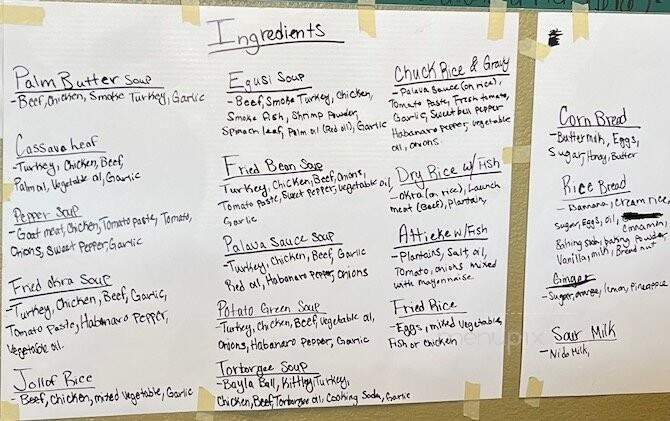 Ingredients
Palm Butter Soup
-Beef, Chicken, Smoke Turkey, Garlic
Cassava Leaf
-Turkey, Chicken, Beef,
Palm oil, Vegetable oil, Garlic
Pepper Soup
-Goat meat, Chicken, Tomato paste, Tomato,
Onions, Sweet Pepper, Garlic
Fried Okra Soup
-Turkey, Chicken, Beef, Garlic,
Tomato Paste, Habanaro Pepper,
Vegetable oil.
Jollof Rice
-Beef, Chicken, mixed vegetable, Garlic
Egusi Soup
-Beef, Smoke Turkey, Chicken,
Smoke Fish, Shrimp Powder,
Spinach leaf, Palm oil (Red oil), Garlic
Fried Bean Soup
Turkey, Chicken, Beef, Onions,
Tomato Paste, Sweet Pepper, Vegetable oil,
Garlic
Palava Sauce Soup
-Turkey, Chicken, Beef, Garlic
Red oil, Habanaro Pepper, Onions
Potato Green Soup
-Turkey, Chicken, Beef, Vegetable oil,
Onions, Habanaro Pepper, Garlic
Torborgee Soup
-Bayla Ball, Kittley, Turkey,
Chicken, Beef, Torborgee oil, Cooking Soda, Garlic
Chuck Rice & Gravy
-Palava Sauce (on rice),
Tomato Paste, Fresh tomato,
Garlic, Sweet bell pepper
Habanaro Pepper, Vegetable
oil, onions
Dry Rice w/Fish
-Okra (on rice), Launch
meat (Beef), Plantain,
Attieke w/Fish
-Plantains, Salt, oil,
Tomato, onions mixed
with mayonnaise
Fried Rice
-Eggs, mixed Vegetable,
Fish or Chicken
Corn Bread
-Buttermilk, Eggs,
Sugar, Honey, Butter
Rice Bread
-Banana, Cream rice,
Sugar, Eggs, oil, Cinnamon,
Baking soda, baking powder
Vanilla, milk, Bread nut
Ginger
-Sugar, orange, lemon, Pineapple
Sour Milk
-Nido Milk,